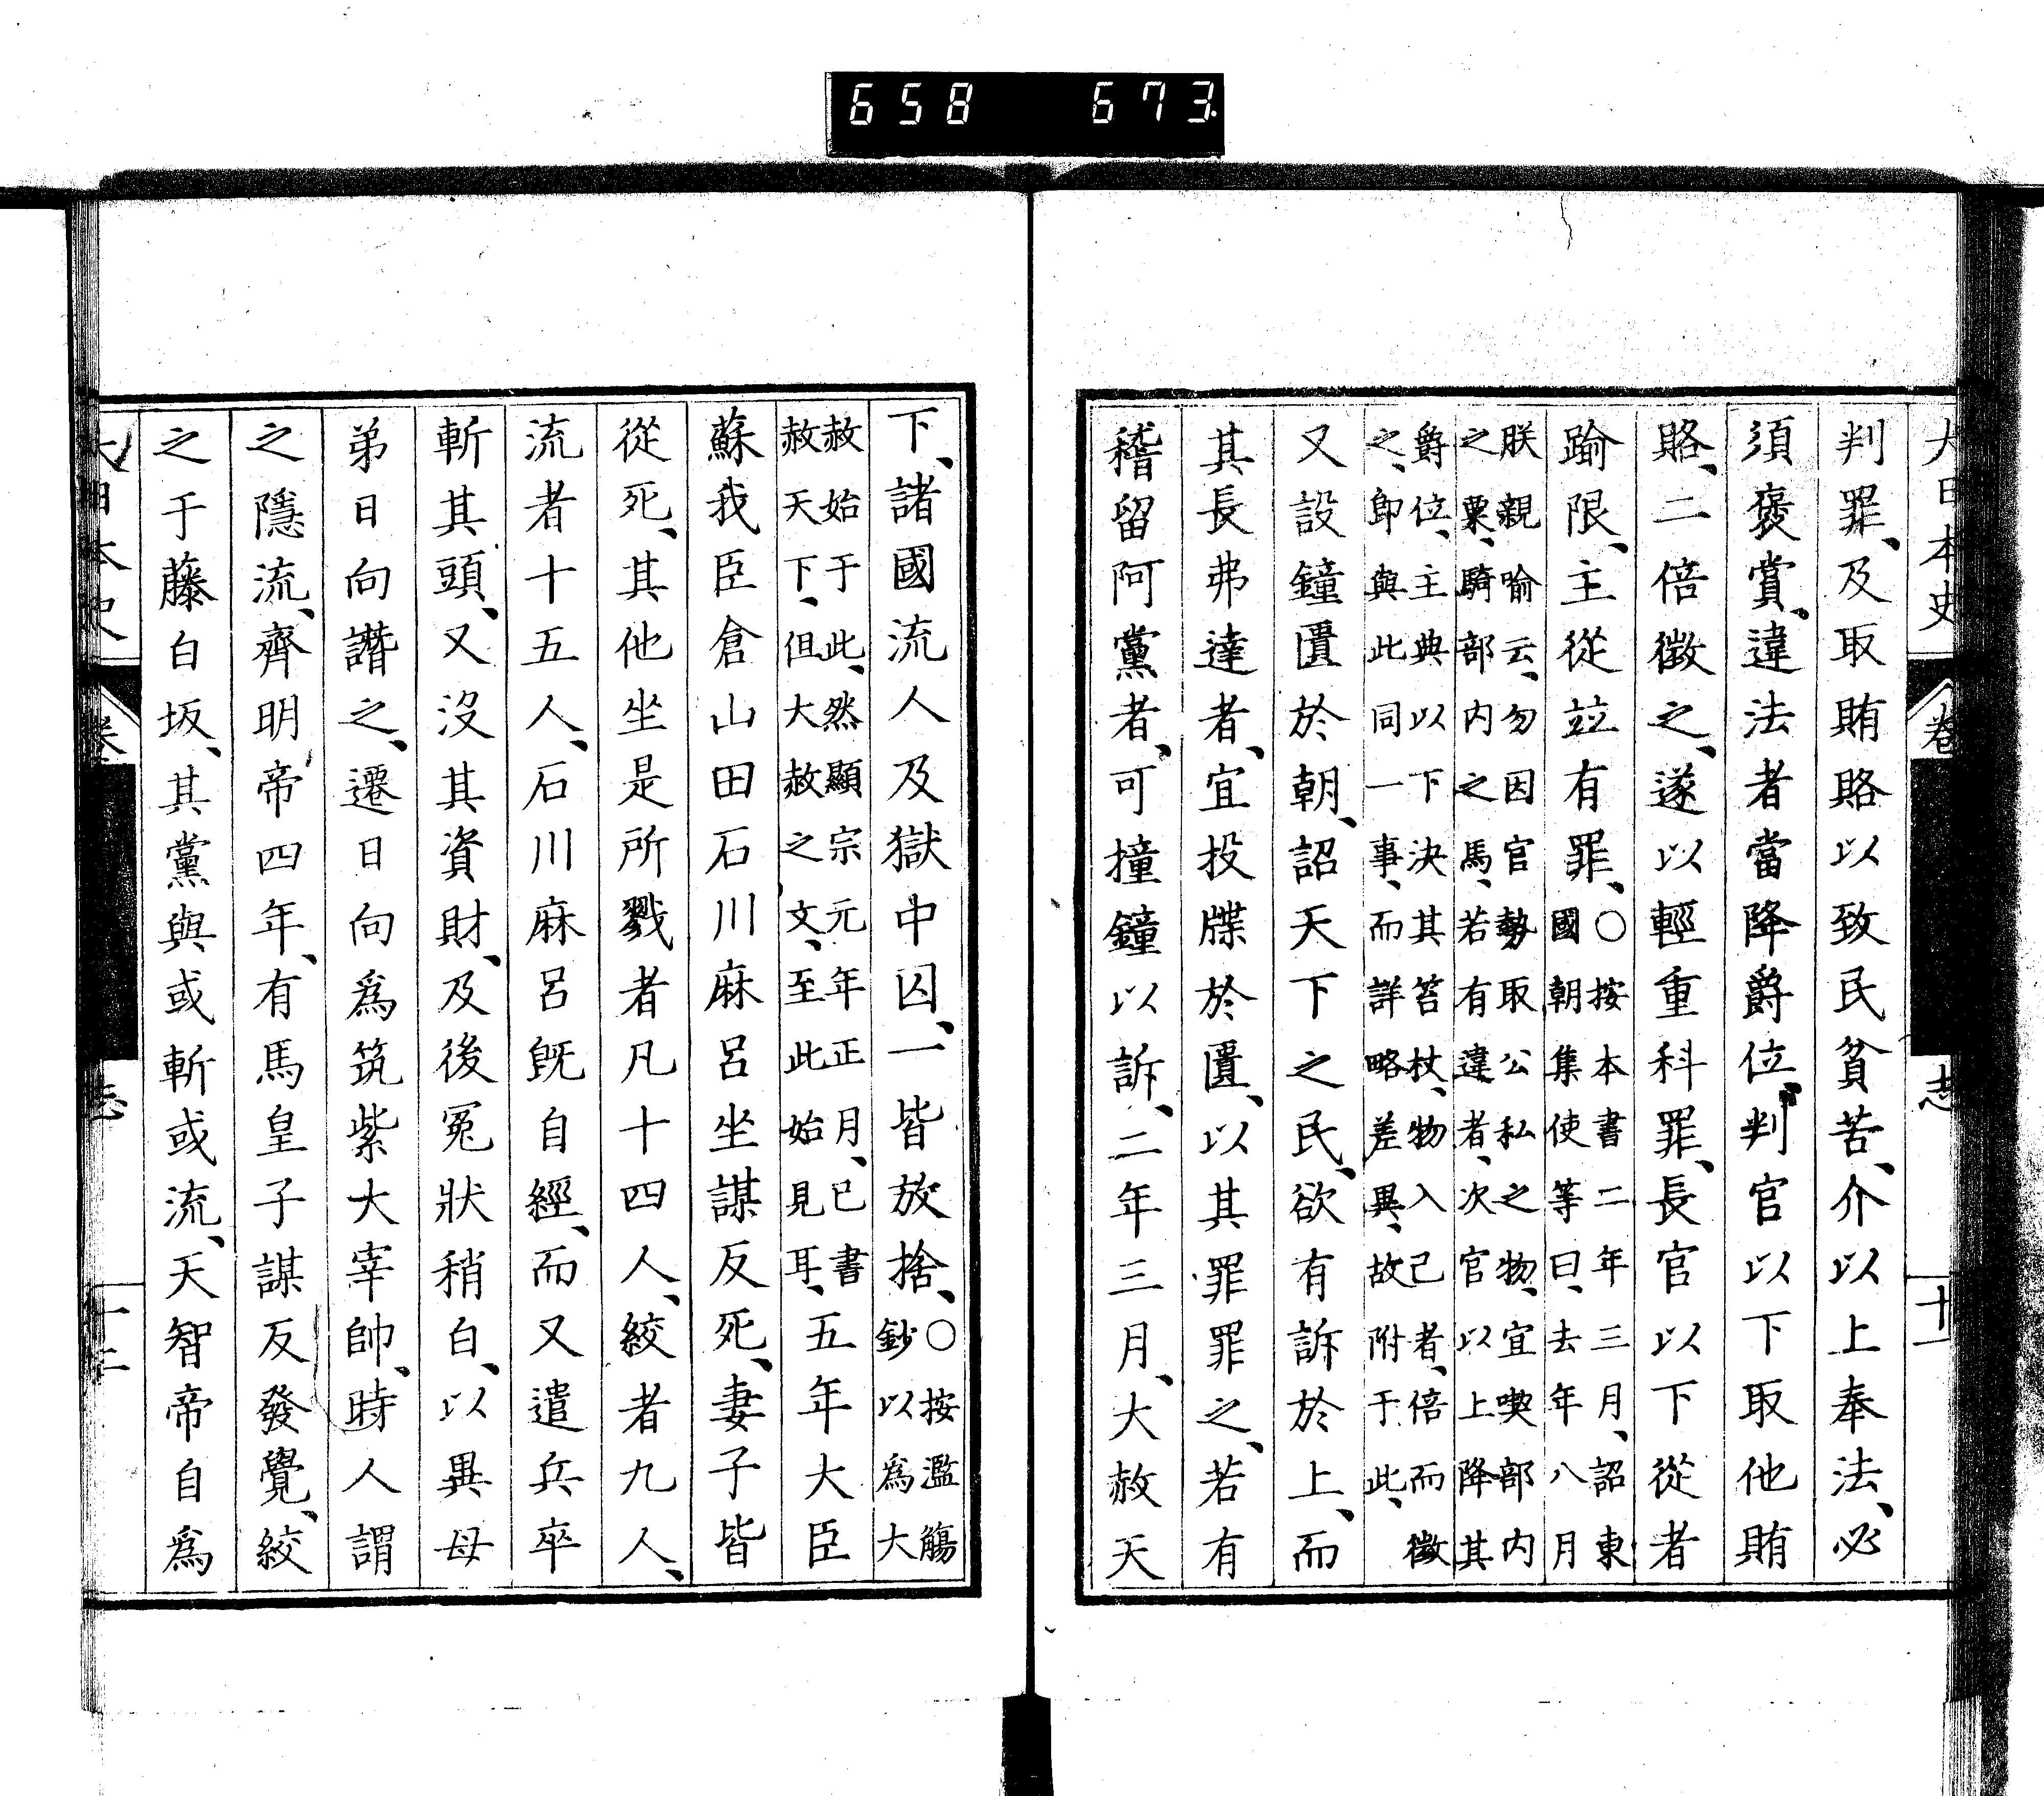 658 673
大日本史 卷 志 十一
判罪、及取賄賂以致民貧苦、介以上奉法、必
須褒賞、違法者當降爵位、判官以下取他賄
賂、二倍徵之、遂以輕重科罪、長官以下從者
踰限、主從竝有罪、○按本書二年三月、詔東
國朝集使等曰、去年八月
朕親喻云、勿因官勢取公私之物、宜喫部内
之粟、騎部内之馬、若有違者、次官以上降其
爵位、主典以下決其笞杖、物入己者、倍而徵
之、卽與此同一事、而詳略差異、故附于此、
又設鐘匱於朝、詔天下之民、欲有訴於上、而
其長弗達者、宜投牒於匱、以其罪罪之、若有
稽留阿黨者、可撞鐘以訴、二年三月、大赦天
下、諸國流人及獄中囚、一皆放捨、○按濫觴
鈔以爲大
赦始于此、然顯宗元年正月、已書
赦天下、但大赦之文、至此始見耳、五年大臣
蘇我臣倉山田石川麻呂坐謀反死、妻子皆
從死、其他坐是所戮者凡十四人、絞者九人、
流者十五人、石川麻呂旣自經、而又遣兵卒
斬其頭、又沒其資財、及後冤狀稍白、以異母
弟日向譖之、遷日向爲筑紫大宰帥、時人謂
之隱流、齊明帝四年、有馬皇子謀反發覺、絞
之于藤白坂、其黨與或斬或流、天智帝自爲
大日本史 卷 志 十二